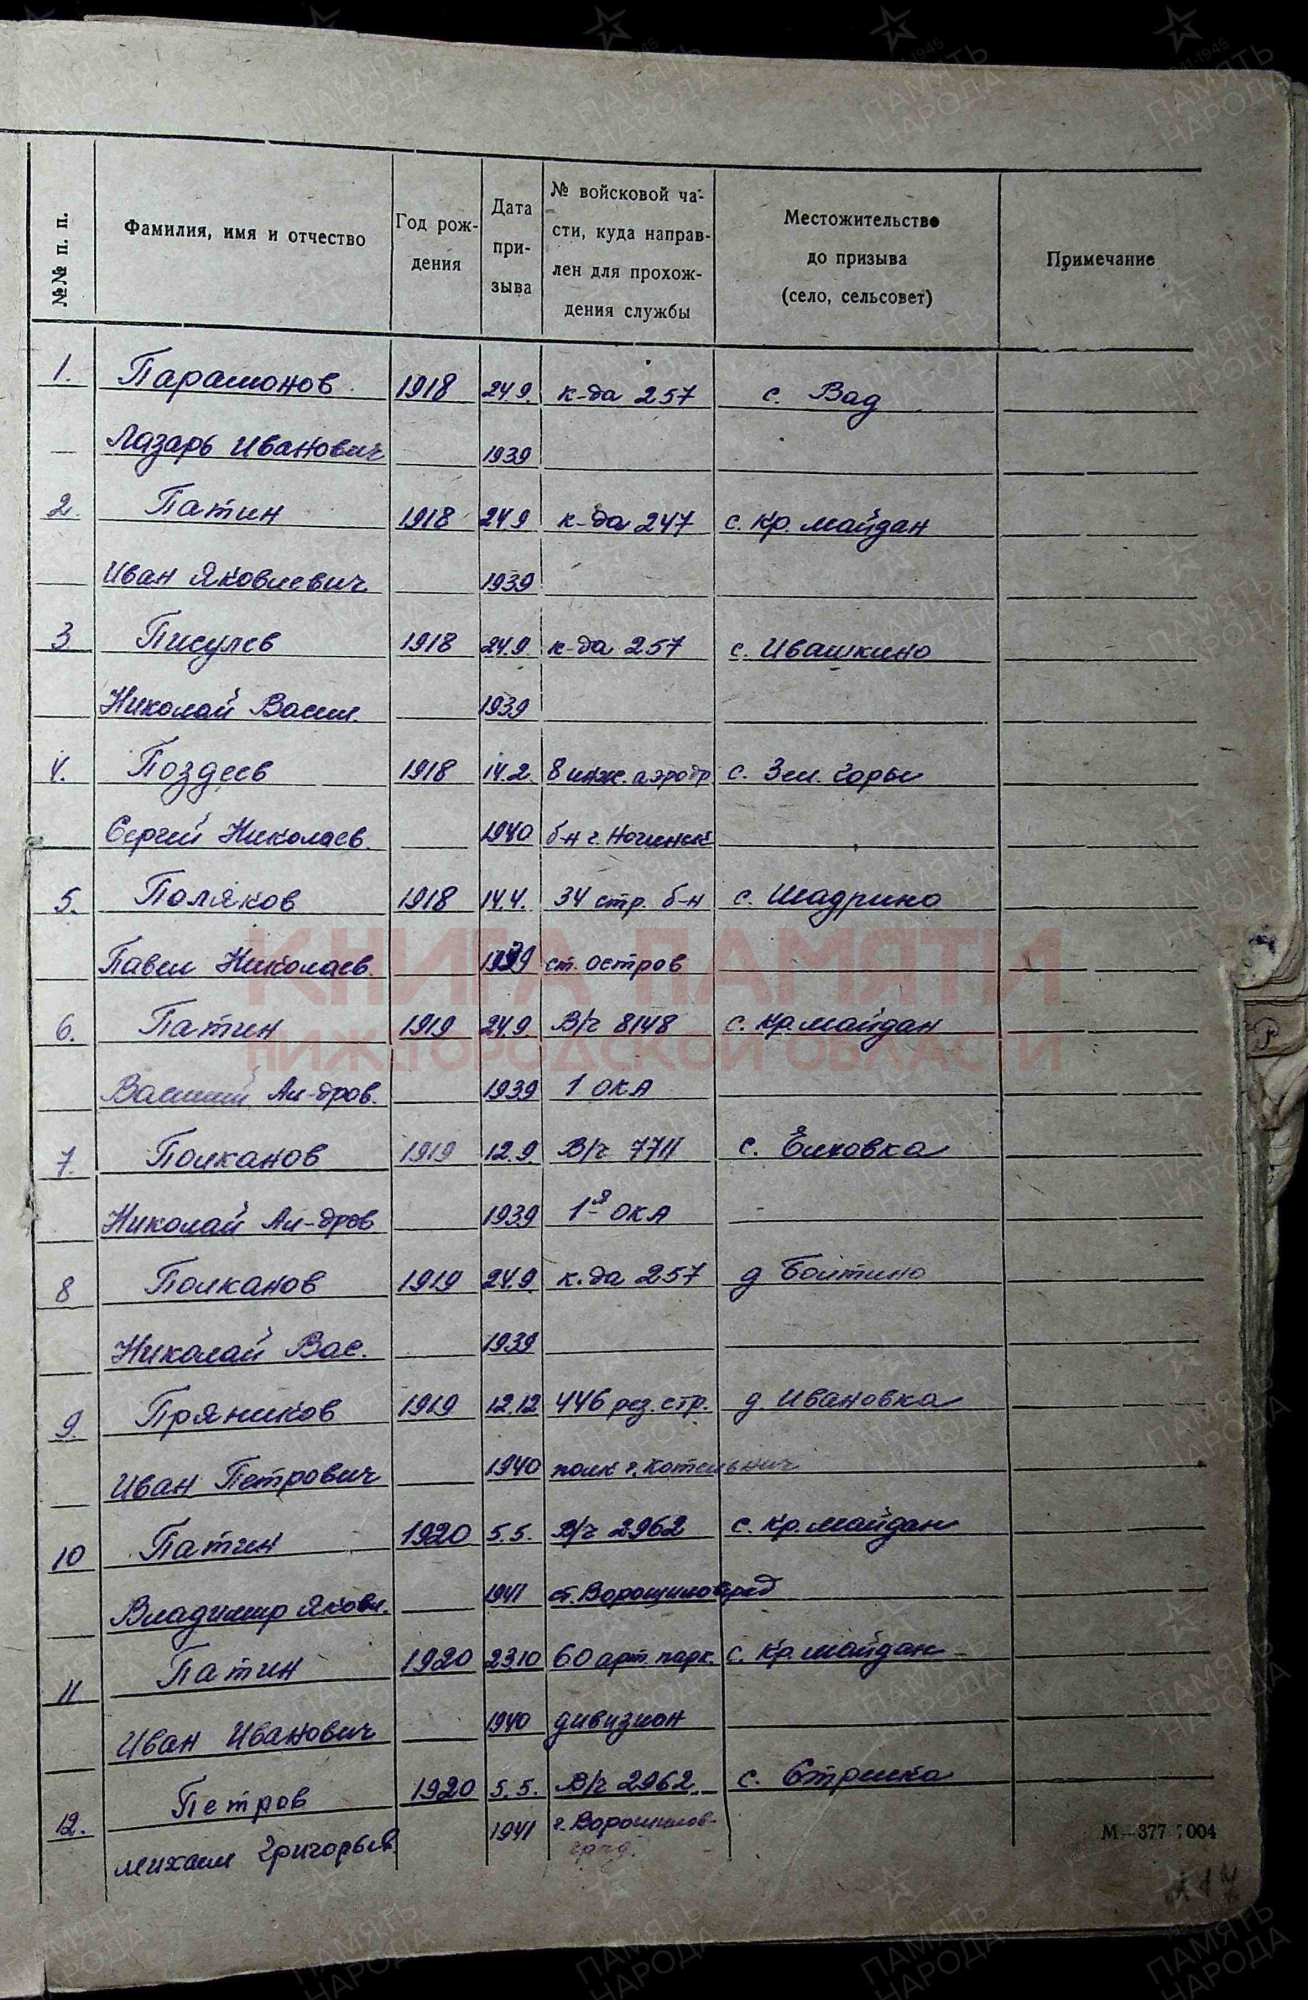 №№ п. п.
Фамилия, имя и отчество
Год рож-
дения
Дата
при-
зыва
№ войсковой ча-
сти, куда направ-
лен для прохож-
дения службы
Местожительство
до призыва
(село, сельсовет)
Примечание
1. Парамонов 1918 24.9. к-да 257 с. Вад
Лазарь Иванович 1939
2. Патин 1918 24.9 к-да 247 с. Кр. майдан
Иван Яковлевич 1939
3 Писулев 1918 24.9. к-да 257 с. Ивашкино
Николай Васил. 1939
4. Поздеев 1918 14.2. 8 инж. аэродр с. Зел. горы
Сергей Николаев. 1940 б-н г. Ногинск
5. Поляков 1918 14.4. 34 стр. б-н с. Шадрино
Павел Николаев. 1939 ст. Остров
6. Патин 1919 24.9. В/ч 8148 с. Кр. майдан
Василий Ал-дров. 1939 1 ОКА
7. Полканов 1919 12.9. В/ч 7711 с. Елховка
Николай Ал-дров. 1939 1я ОКА
8 Полканов 1919 24.9. к-да 257 д Болтино
Николай Вас. 1939
9. Пряников 1919 12.12 446 рез. стр. д Ивановка
Иван Петрович 1940 полк г. Котельнич
10 Патин 1920 5.5. В/ч 2962 с. Кр. майдан
Владимир Яковл. 1941 ст. Ворошиловград
11 Патин 1920 23.10 60 арт. парк. с. Кр. майдан
Иван Иванович 1940 дивизион
12. Петров 1920 5.5. В/ч 2962 с. Стрелка
михаил Григорьев. 1941 г. Ворошилов-
град.
М—377 004
КНИГА ПАМЯТИ
НИЖЕГОРОДСКОЙ ОБЛАСТИ
ПАМЯТЬ
НАРОДА